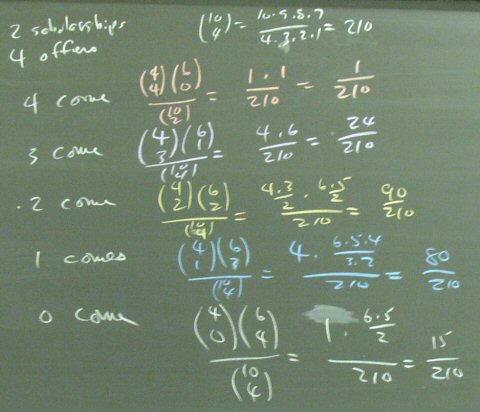 2 scholarships
4 offers
(10 4) = 10.9.8.7 / 4.3.2.1 = 210
4 come (4 4)(6 0) / (10 2) = 1.1 / 210 = 1 / 210
3 come (4 3)(6 1) / (10 4) = 4.6 / 210 = 24 / 210
2 come (4 2)(6 2) / (10 4) = 4.3 / 2 . 6.5 / 2 / 210 = 90 / 210
1 comes (4 1)(6 3) / (10 4) = 4 . 6.5.4 / 3.2 / 210 = 80 / 210
0 come (4 0)(6 4) / (10 4) = 1 . 6.5 / 2 / 210 = 15 / 210